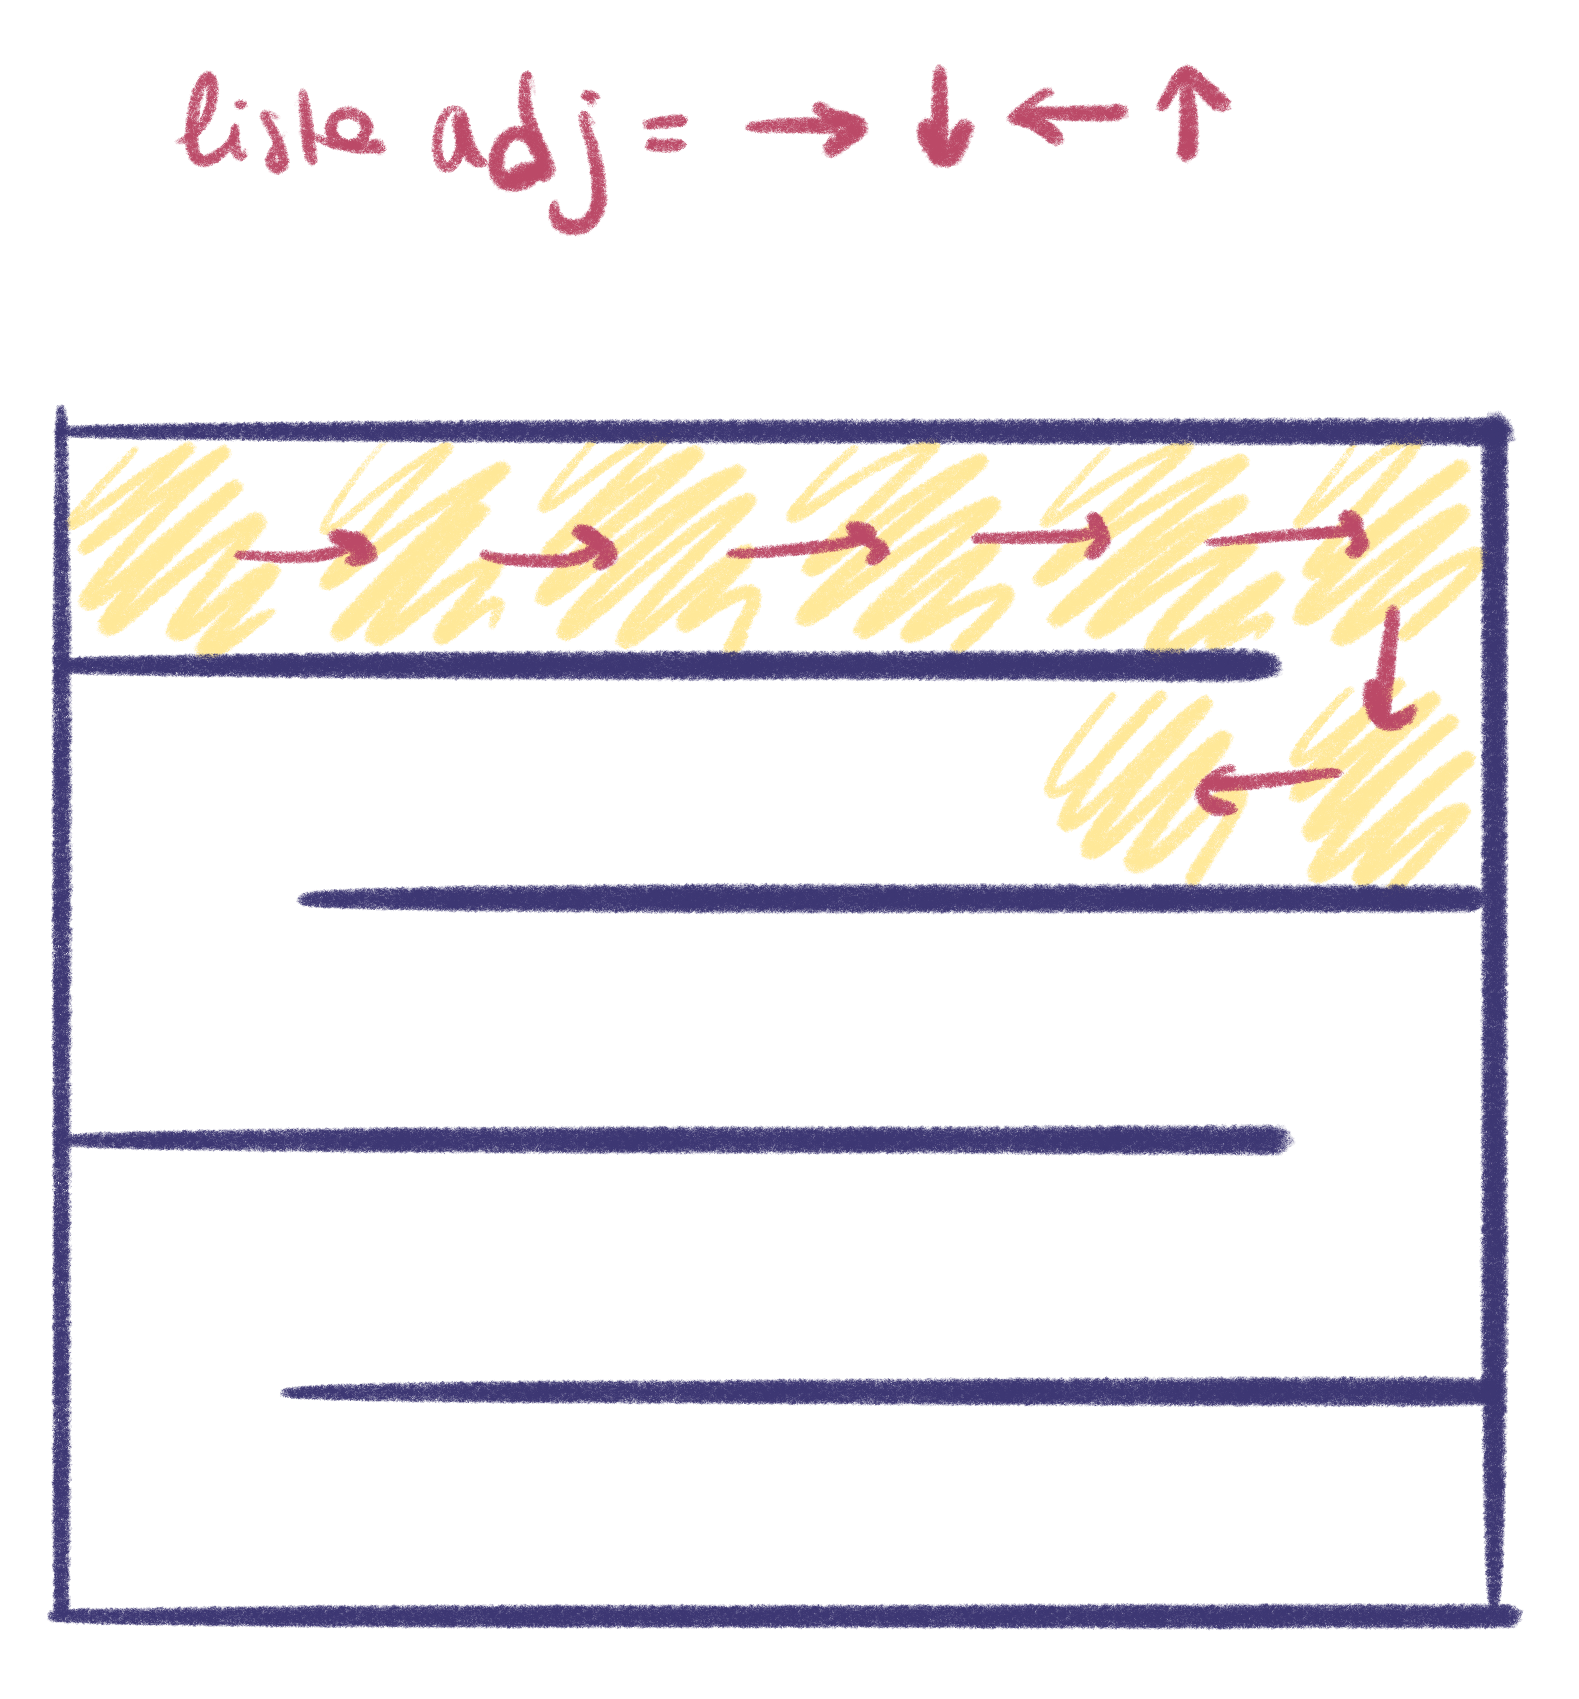 liste adj = → ↓ ← ↑